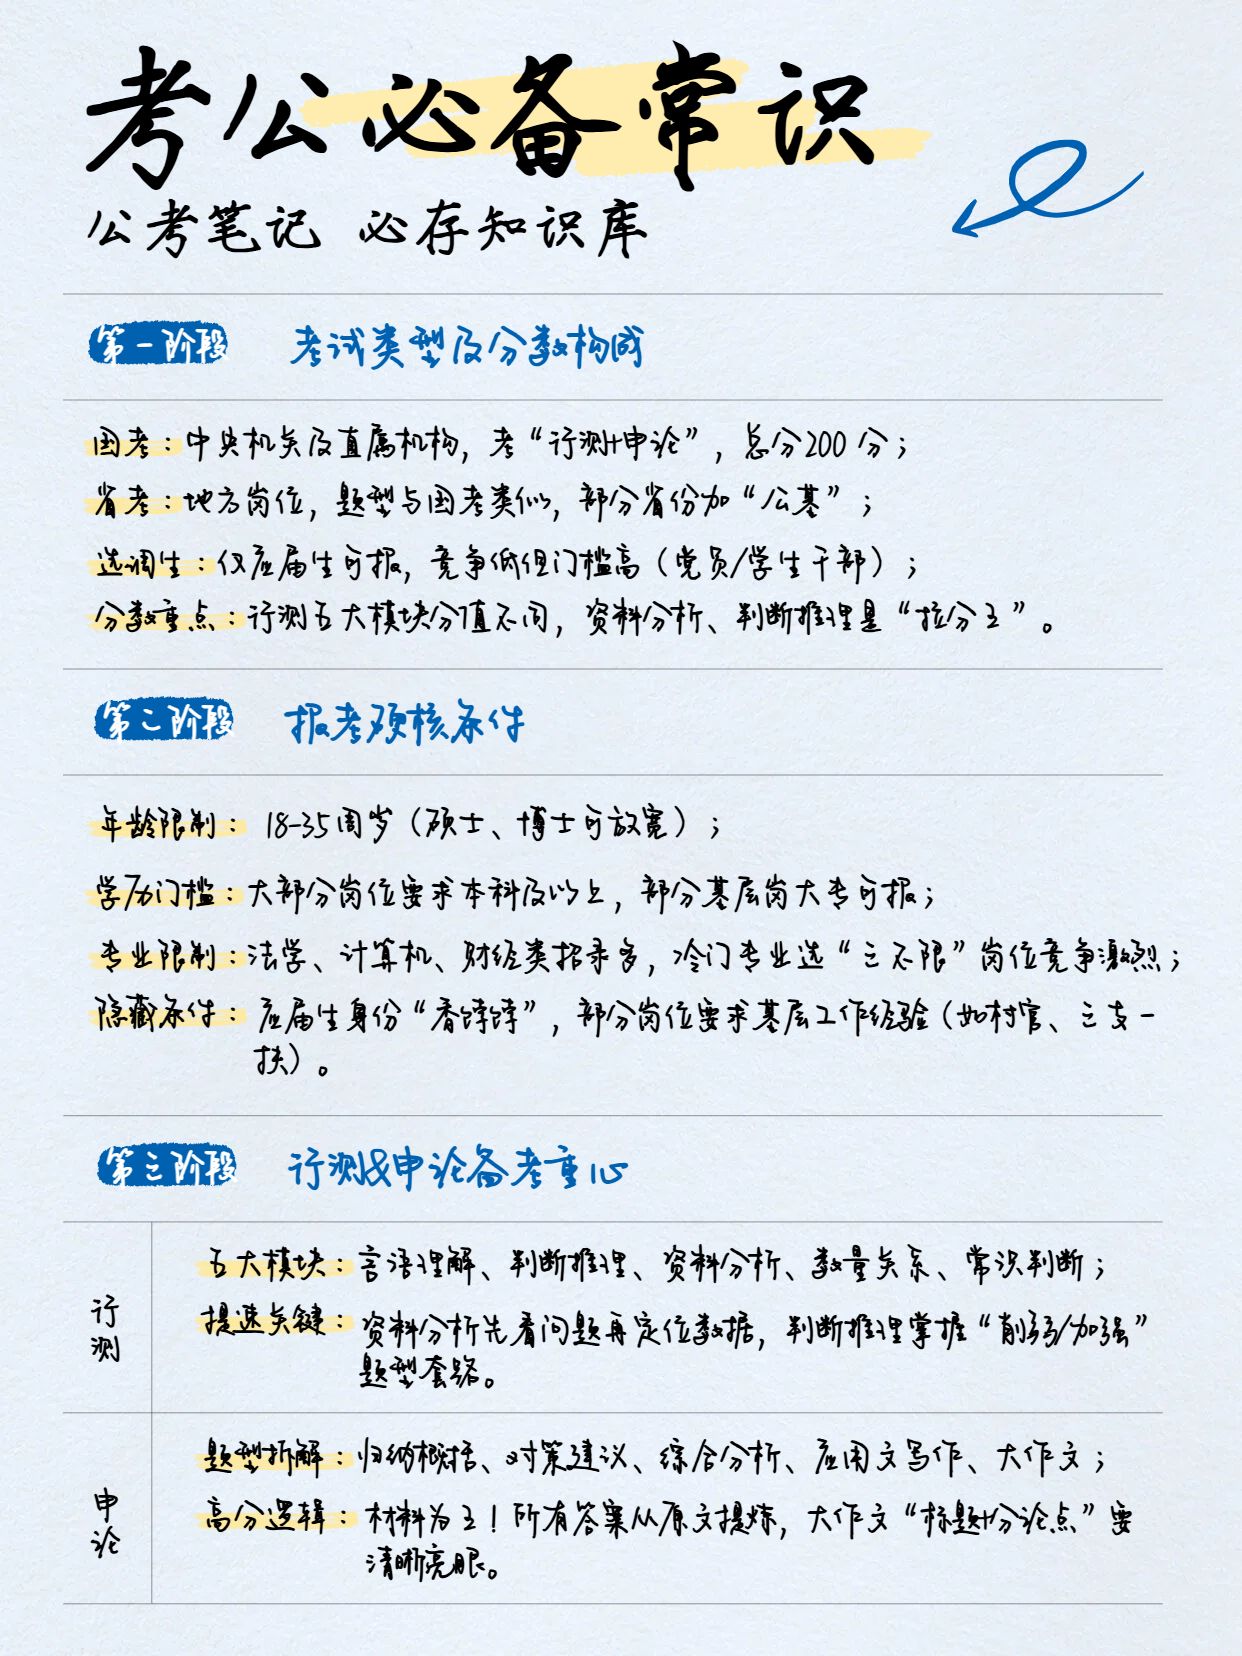 考公必备常识
公考笔记 必存知识库
第一阶段 考试类型及分数构成
国考：中央机关及直属机构，考“行测+申论”，总分200分；
省考：地方岗位，题型与国考类似，部分省份加“公基”；
选调生：仅应届生可报，竞争低但门槛高（党员/学生干部）；
分数重点：行测五大模块分值不同，资料分析、判断推理是“拉分王”。
第二阶段 报考硬核条件
年龄限制：18-35周岁（硕士、博士可放宽）；
学历门槛：大部分岗位要求本科及以上，部分基层岗大专可报；
专业限制：法学、计算机、财经类招录多，冷门专业选“三不限”岗位竞争激烈；
隐藏条件：应届生身份“香饽饽”，部分岗位要求基层工作经验（如村官、三支一
扶）。
第三阶段 行测&申论备考重心
行测
五大模块：言语理解、判断推理、资料分析、数量关系、常识判断；
提速关键：资料分析先看问题再定位数据，判断推理掌握“削弱/加强”
题型套路。
申论
题型拆解：归纳概括、对策建议、综合分析、应用文写作、大作文；
高分逻辑：材料为王！所有答案从原文提炼，大作文“标题+分论点”要
清晰亮眼。